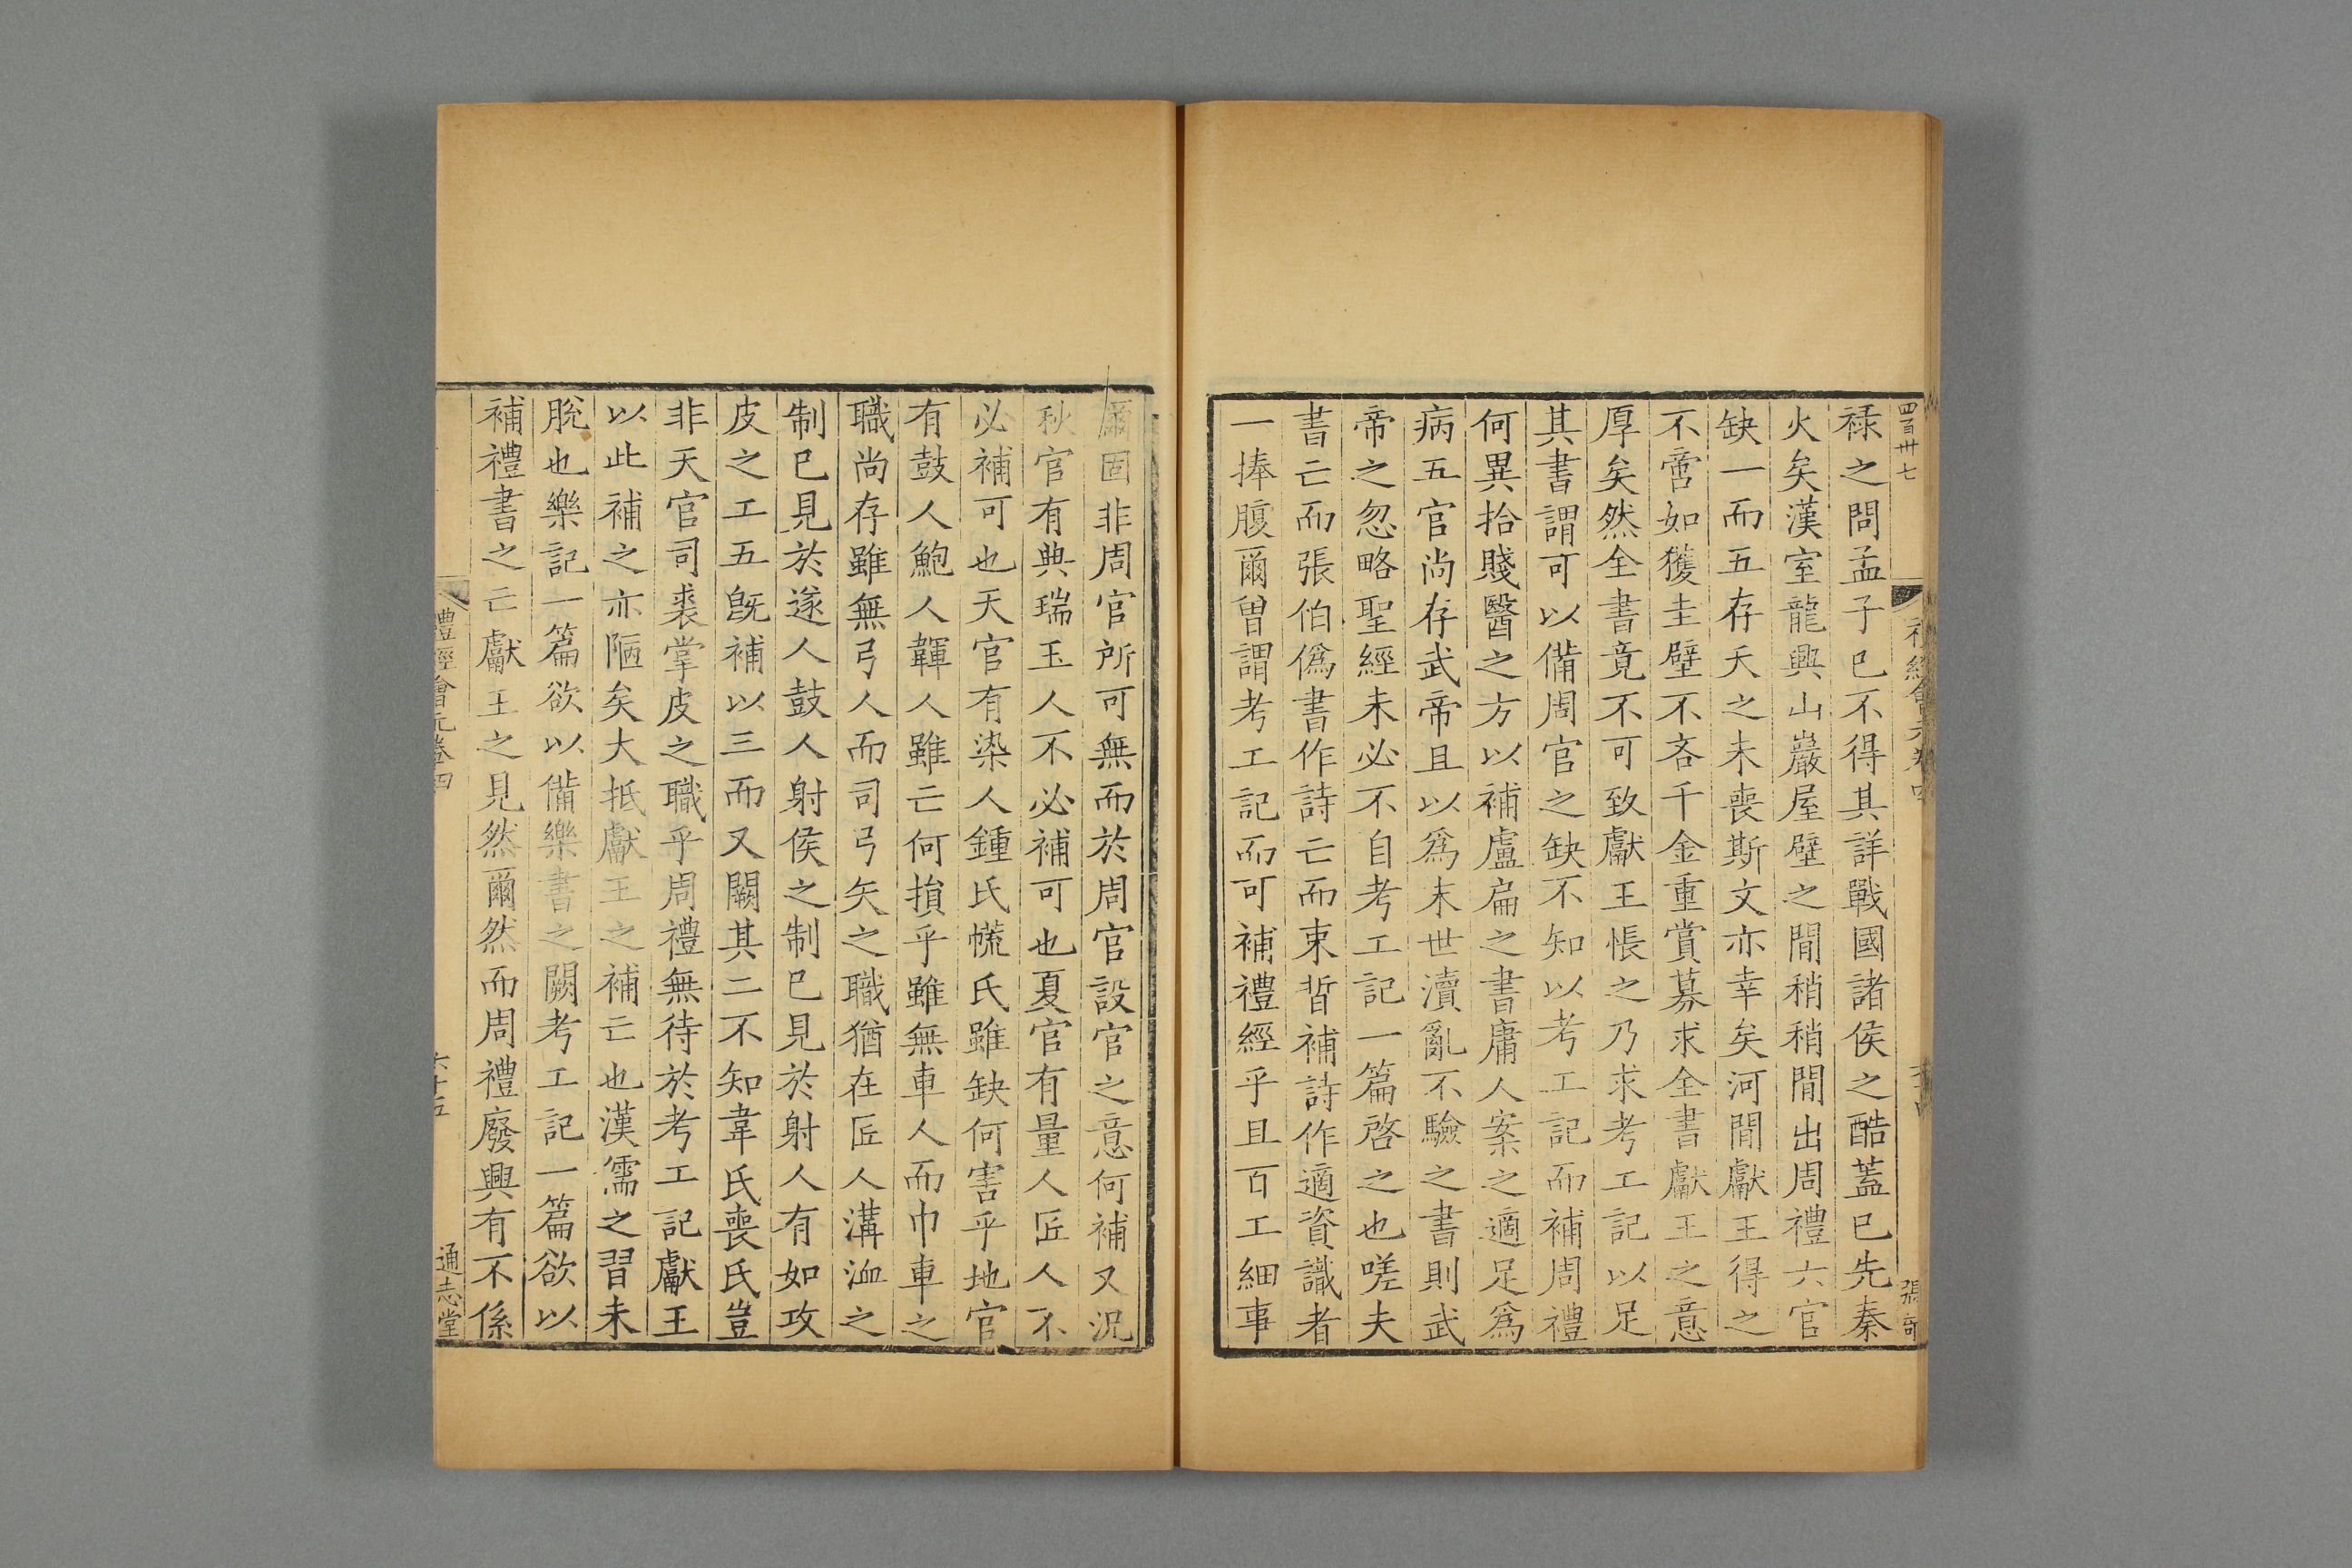 四百卅七
禮經會元卷四
六十四
張奇
祿之問孟子已不得其詳戰國諸侯之酷蓋已先秦
火矣漢室龍興山巖屋壁之間稍稍間出周禮六官
缺一而五存天之未喪斯文亦幸矣河間獻王得之
不啻如獲圭璧不吝千金重賞募求全書獻王之意
厚矣然全書竟不可致獻王悵之乃求考工記以足
其書謂可以備周官之缺不知以考工記而補周禮
何異拾賤醫之方以補盧扁之書庸人案之適足爲
病五官尚存武帝且以爲末世瀆亂不驗之書則武
帝之忽略聖經未必不自考工記一篇啓之也嗟夫
書亡而張伯僞書作詩亡而束晳補詩作適資識者
一捧腹爾曾謂考工記而可補禮經乎且百工細事
爾固非周官所可無而於周官設官之意何補又況
秋官有典瑞玉人不必補可也夏官有量人匠人不
必補可也天官有染人鍾氏㡛氏雖缺何害乎地官
有鼓人鮑人韗人雖亡何損乎雖無車人而巾車之
職尚存雖無弓人而司弓矢之職猶在匠人溝洫之
制已見於遂人鼓人射侯之制已見於射人有如攻
皮之工五旣補以三而又闕其二不知韋氏喪氏豈
非天官司裘掌皮之職乎周禮無待於考工記獻王
以此補之亦陋矣大抵獻王之補亡也漢儒之習未
脫也樂記一篇欲以備樂書之闕考工記一篇欲以
補禮書之亡獻王之見然爾然而周禮廢興有不係
禮經會元卷四
六十五
通志堂